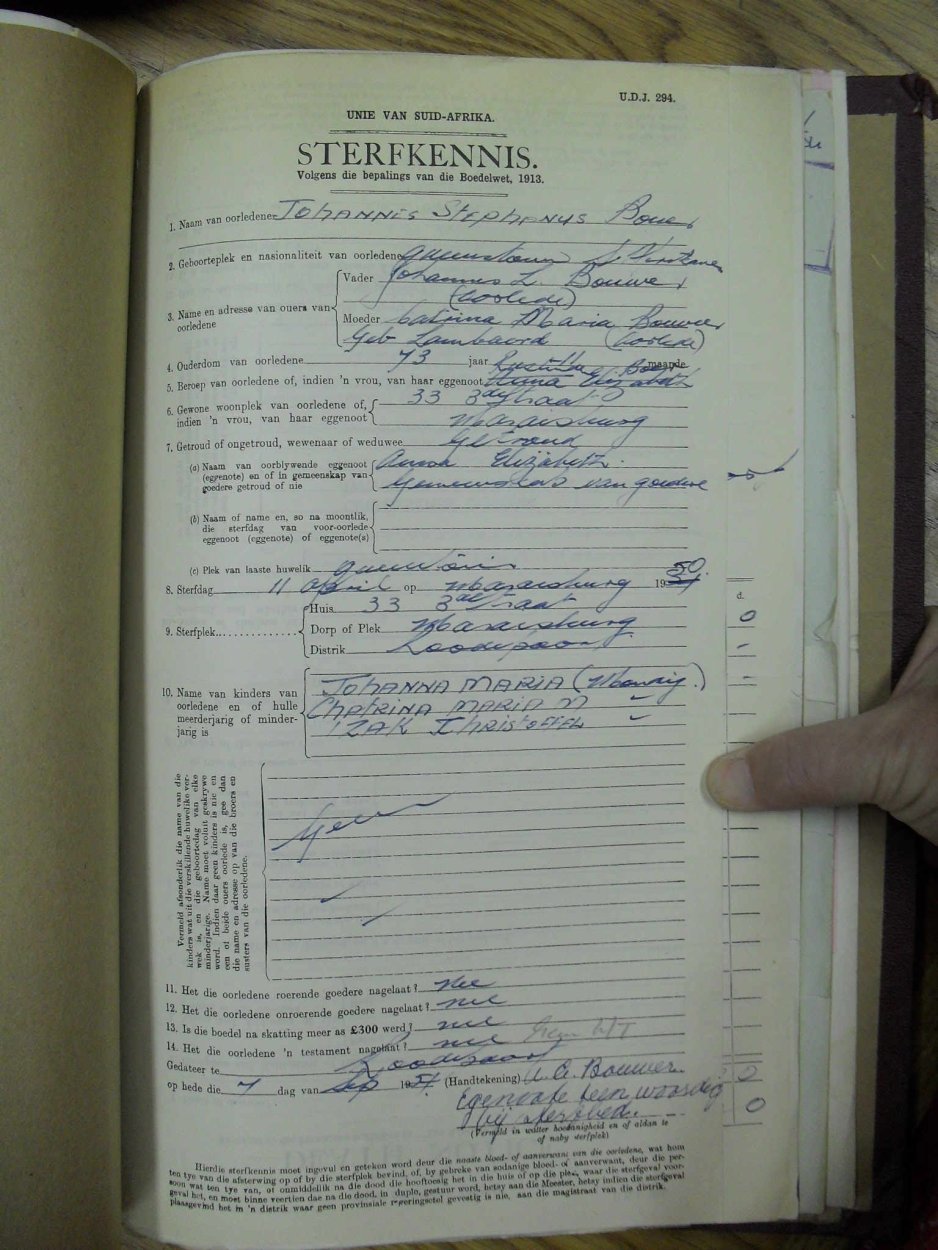 U.D.J. 294.
UNIE VAN SUID-AFRIKA.
STERFKENNIS.
Volgens die bepalings van die Boedelwet, 1913.
1. Naam van oorledene JOHANNES STEPHANUS Bouwer
2. Geboorteplek en nasionaliteit van oorledene Queenstown
3. Name en adresse van ouers van oorledene
Vader Johannes L. Bouwer
(Oorlede)
Moeder Catrina Maria Bouwer
Geb (Oorlede)
4. Ouderdom van oorledene 73 jaar maande
5. Beroep van oorledene of, indien 'n vrou, van haar eggenoot Anna Elizabeth
6. Gewone woonplek van oorledene of, indien 'n vrou, van haar eggenoot
33 3de Straat
Maraisburg
7. Getroud of ongetroud, wewenaar of weduwee Getroud
(a) Naam van oorblywende eggenoot (eggenote) en of in gemeenskap van goedere getroud of nie
Anna Elizabeth.
Gemeenskap van goedere
(b) Naam of name en, so na moontlik, die sterfdag van voor-oorlede eggenoot (eggenote) of eggenote(s)
(c) Plek van laaste huwelik
8. Sterfdag 11 April op Maraisburg 19 50
9. Sterfplek
Huis 33 3de Straat
Dorp of Plek Maraisburg
Distrik Roodepoort
d.
0
-
-
10. Name van kinders van oorledene en of hulle meerderjarig of minderjarig is
JOHANNA MARIA (Mondig.)
CHATRINA MARIA M "
IZAK CHRISTOFFEL "
Vermeld afsonderlik die name van die kinders wat uit die verskillende huwelike verwek is, en die geboortedag van elke minderjarige. Name moet voluit geskrywe word. Indien daar geen kinders is nie en een of beide ouers oorlede is, gee dan die name en adresse op van die broers en susters van die oorledene.
Geen
11. Het die oorledene roerende goedere nagelaat? nee
12. Het die oorledene onroerende goedere nagelaat? nee
13. Is die boedel na skatting meer as £300 werd? nee
14. Het die oorledene 'n testament nagelaat? nee
Gedateer te Roodepoort
op hede die 7 dag van Sep 19 51 (Handtekening) A. E. Bouwer.
Egenoote teenwoordig
bij sterfbed.
(Vermeld in watter hoedanigheid en of aldan te of naby sterfplek)
0
0
Hierdie sterfkennis moet ingevul en geteken word deur die naaste bloed- of aanverwant van die oorledene, wat hom
ten tye van die afsterwing op of by die sterfplek bevind, of, by gebreke van sodanige bloed- of aanverwant, deur die per-
soon wat ten tye van, of onmiddellik na die dood die hooftoesig het in die huis of op die plek, waar die sterfgeval voor-
geval het, en moet binne veertien dae na die dood, in duplo, gestuur word, hetsy aan die Meester, hetsy indien die sterfgeval
plaasgevind het in 'n distrik waar geen provinsiale regeringsetel gevestig is nie, aan die magistraat van die distrik.